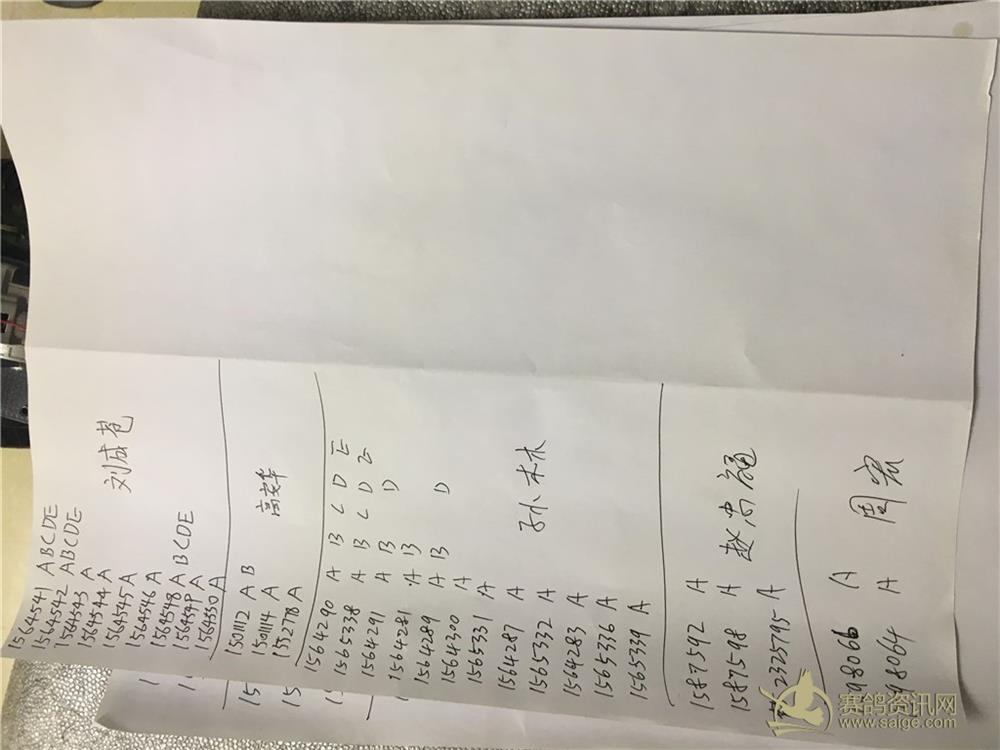 1564541 ABCDE
1564542 ABCDE
1564543 A
1564544 A
1564545 A
1564546 A
1564548 A BCDE
1564549 A
1564550 A
刘成苍
1501112 A B
1501114 A
1552778 A
高安华
1564290 A B C D E
1565338 A B C D E
1564291 A B D
1564281 A B
1564289 A B D
1564300 A
1565331 A
1564287 A
1565332 A
1564283 A
1565336 A
1565339 A
孙木林
1587592 A
1587598 A
2325795 A
赵常
98066 A
158064 A
周宏
赛鸽资讯网
www.saige.com